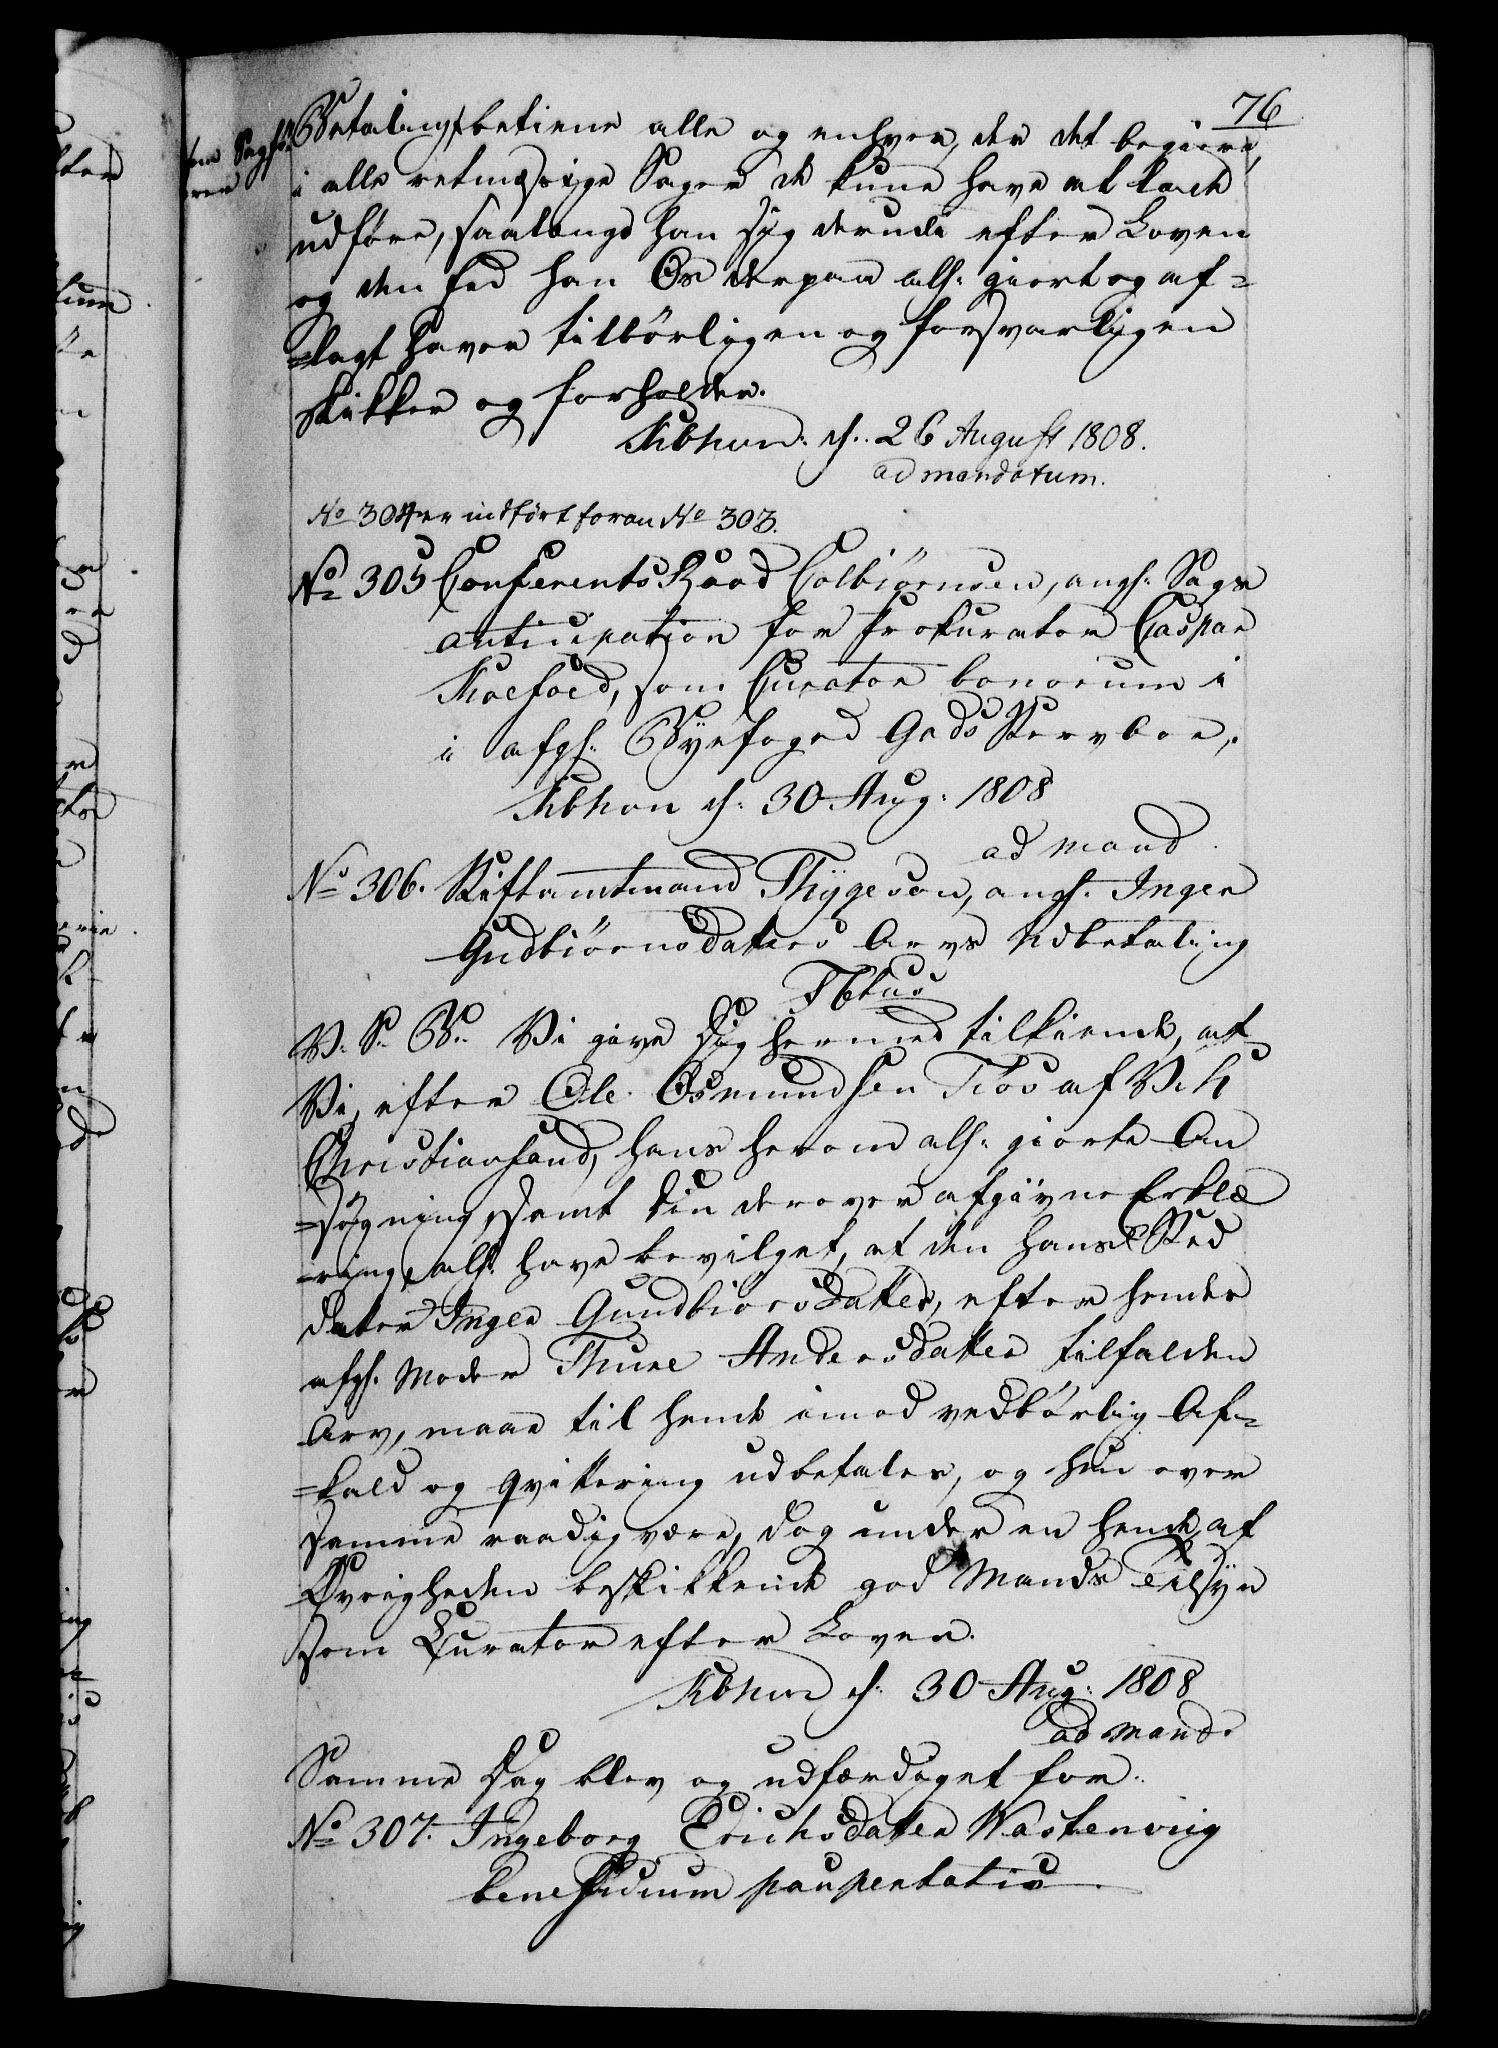 76
Betaling, betiene alle og enhver, der det begiere,
i alle retmæssige Sager de kune have at lade
udföre, saalænge han sig derudi efter Loven
og den Eed han Os derpaa alh: giort og af=
=lagt haver tilbörligen og forsvarligen
skikker og forholder.
Kbhvn: d: 26 August 1808.
ad mandatum.
No 304 er indfört foran No 303.
No 305 Conferents Raad Colbiörnsen, angh: Sags
anticipation for Prokurator Caspar
Koefoed, som Curator bonorum i
i afgh: Byefoged Gads Stervboe,
Kbhvn d: 30 Aug: 1808
ad mand.
No 306. Stiftamtmand Thygeson, angh: Inger
Gudbiörnsdatters Arvs Udbetaling
V. S. G. Vi give Dig hermed tilkiende, at
Vi, efter Ole Osmundsen af
Christiansand, hans herom alh: giorte An
=sögning, samt din derover afgivne Erklæ
=ring, alh: have bevilget, at den hans Sted
datter Inger Gundbiörsdatter, efter hendes
afgh: Moder Thure Andersdatter tilfalden
Arv, maae til hende imod vedbörlig Af=
=kald og qvittering udbetales, og hun over
samme raadig være, dog under en hende af
Övrigheden beskikkende god Mands Tilsyn
som Curator efter Loven.
Kbhvn d: 30 Aug: 1808
ad mand:
Samme Dag blev og udfærdiget for
No 307. Ingeborg Erichsdatter Wastenviig
beneficium paupertatis